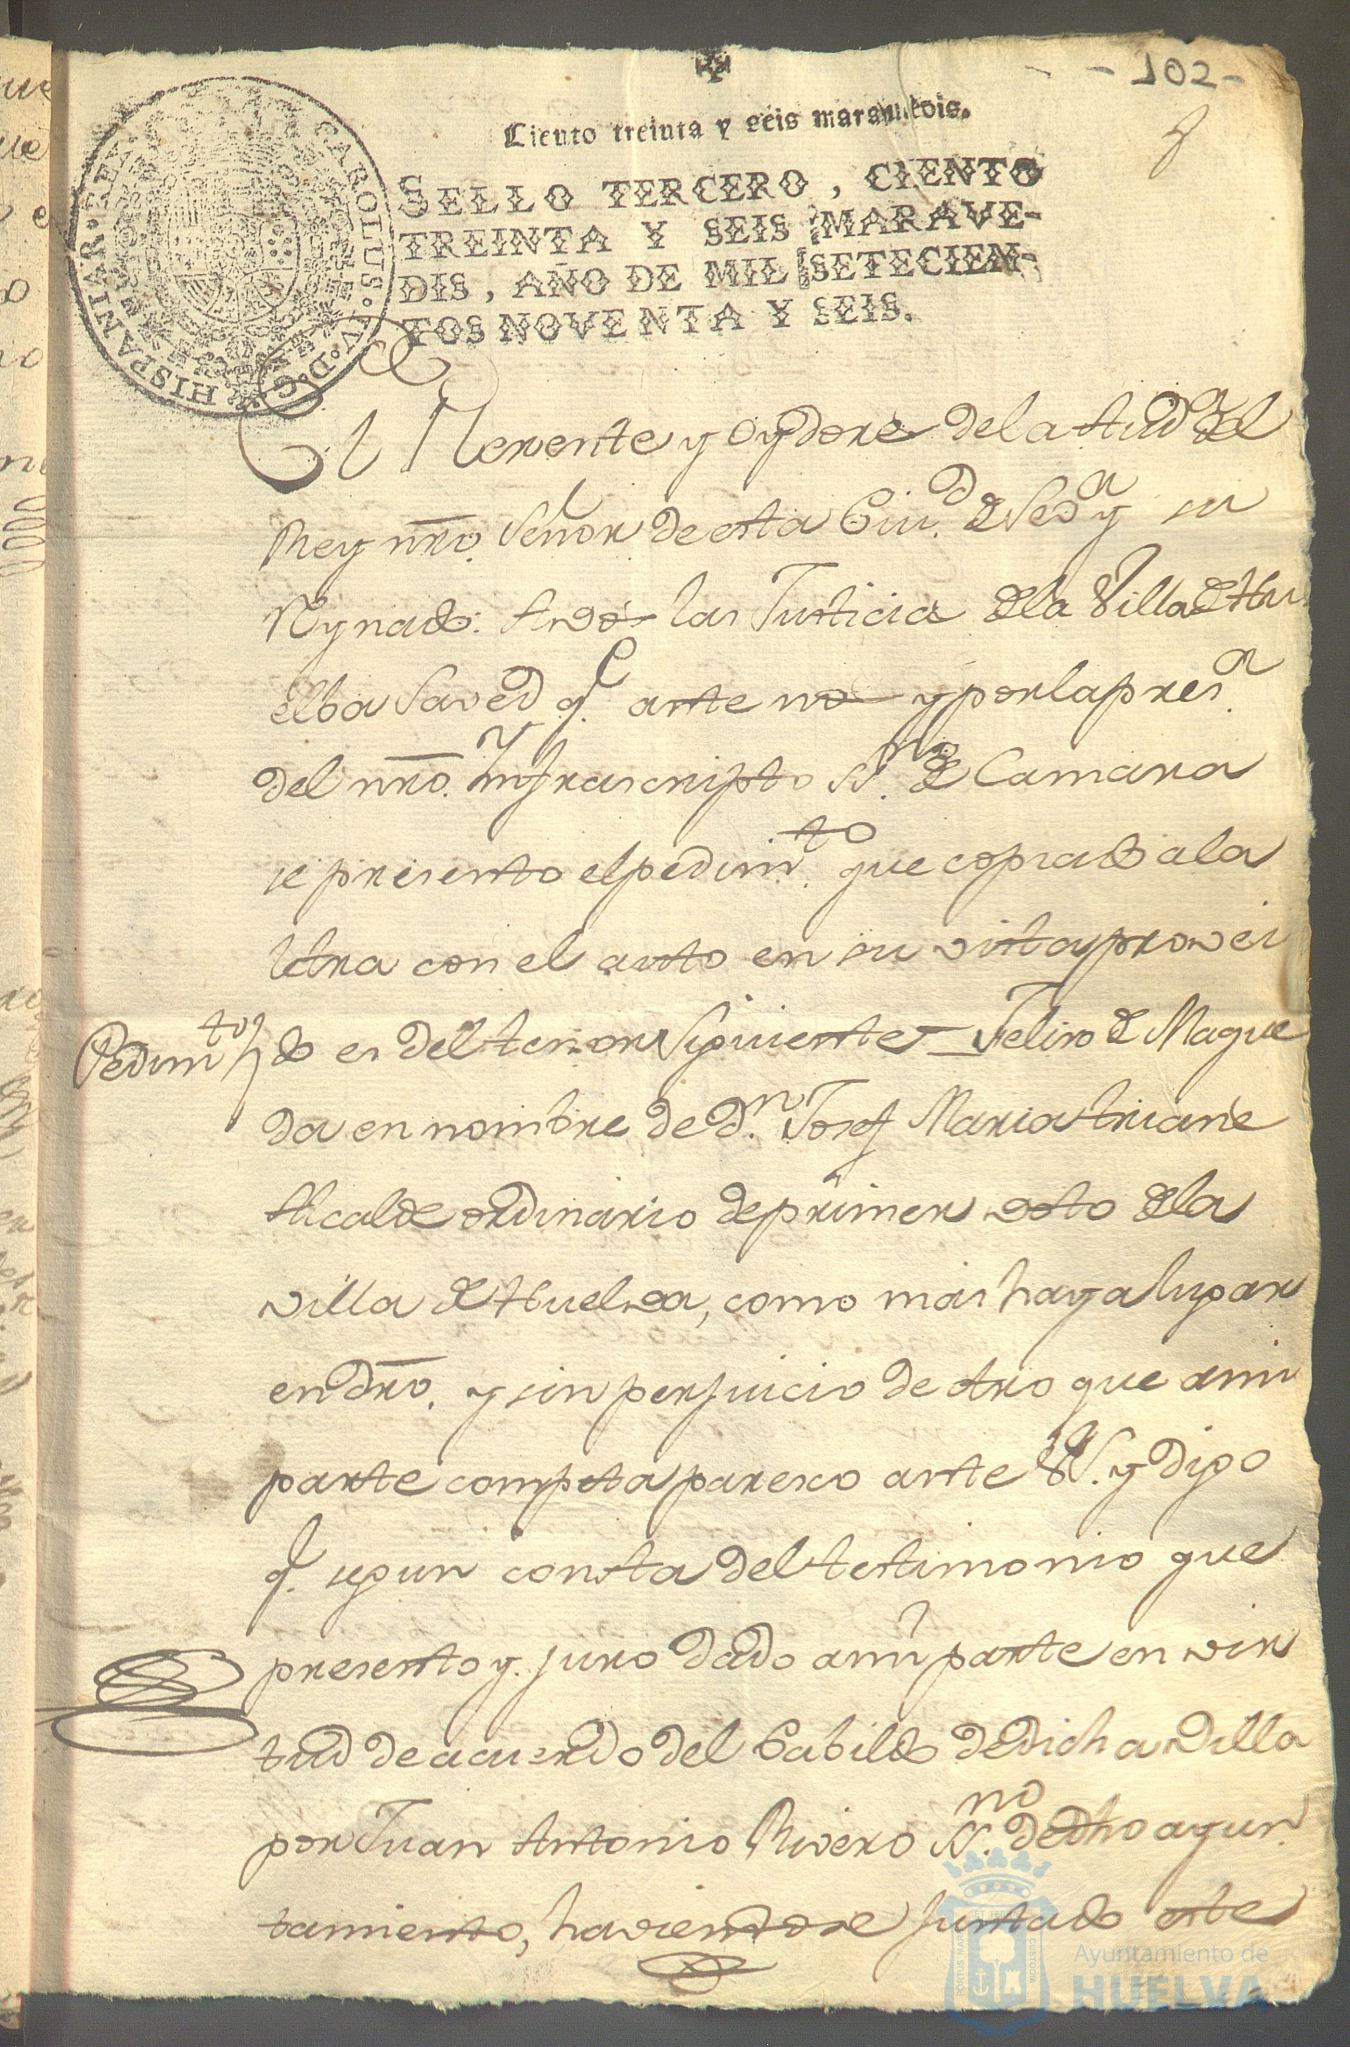 -102-
Ciento treinta y seis marauedis.
SELLO TERCERO, CIENTO
TREINTA Y SEIS MARAVE-
DIS, AÑO DE MIL SETECIEN-
TOS NOVENTA Y SEIS.
CAROLUS·IV·D·G·HISPANIAR·REX
El Rexente y Oydores de la Aud.a del
Rey nro. Señor de esta Ciu.d de Sev.a y su
Reynado: A vos las Justicias de la Villa de Hu
elba Saved q.e ante nos y por la pres.a
del nro. Infrascripto ss.no de Camara
se presento el pedim.to que copiado a la
letra con el auto en su vista provei
Pedim.to do es del tenor siguiente = Felix de Mague
da en nombre de D.n Josef Maria
Alcalde ordinario de primer voto de la
villa de Huelva, como mas haya lugar
en dro. y sin perjuicio de otro que a mi
parte competa paresco ante V.S. y digo
q.e segun consta del testimonio que
presento y juro dado a mi parte en vir
tud de acuerdo del Cabildo de dicha Villa
por Juan Antonio Rivero ss.no de dho ayun
tamiento, haviendose juntado este
Ayuntamiento de
HUELVA